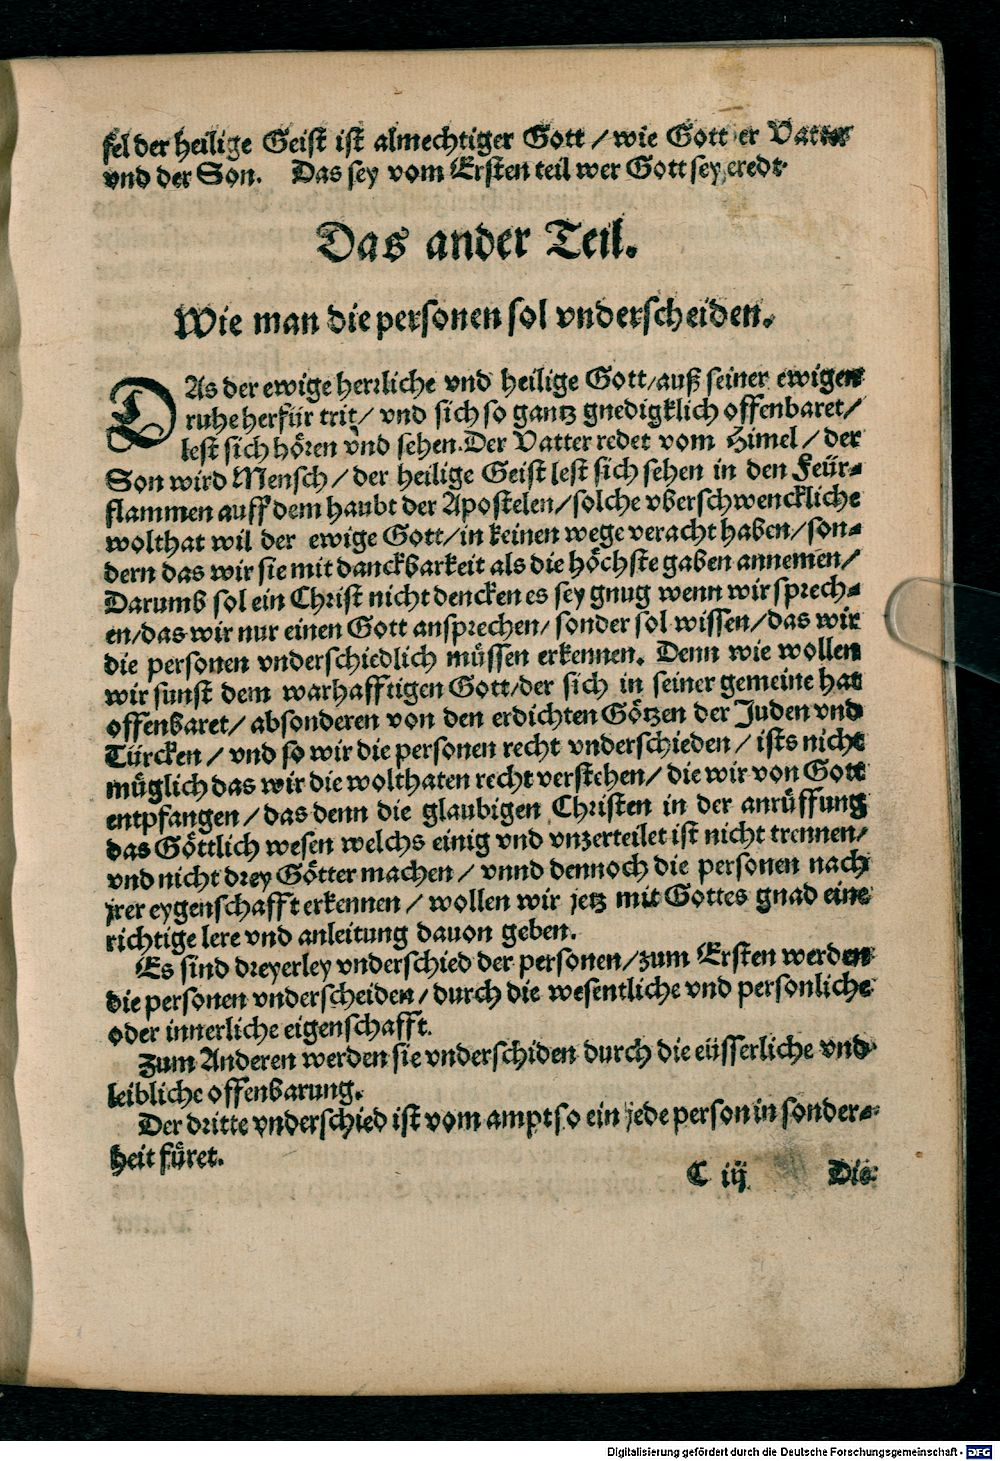 fel der heilige Geist ist almechtiger Gott / wie Gott er Vatter
vnd der Son. Das sey vom Ersten teil wer Gott sey eredt
Das ander Teil.
Wie man die personen sol vnderscheiden.
DAs der ewige herrliche vnd heilige Gott/auß seiner ewigen
ruhe herfür trit/ vnd sich so gantz gnedigklich offenbaret/
lest sich hören vnd sehen. Der Vatter redet vom Himel / der
Son wird Mensch / der heilige Geist lest sich sehen in den Feür-
flammen auff dem haubt der Apostelen/ solche vberschwenckliche
wolthat wil der ewige Gott/in keinen wege veracht haben/ son-
dern das wir sie mit danckbarkeit als die höchste gaben annemen/
Darumb sol ein Christ nicht dencken es sey gnug wenn wir sprech-
en/das wir nur einen Gott ansprechen/ sonder sol wissen/das wir
die personen vnderschiedlich müssen erkennen. Denn wie wollen
wir sunst dem warhafftigen Gott/der sich in seiner gemeine hat
offenbaret/ absonderen von den erdichten Götzen der Juden vnd
Türcken / vnd so wir die personen recht vnderschieden / ists nicht
müglich das wir die wolthaten recht verstehen/ die wir von Gott
entpfangen/ das denn die glaubigen Christen in der anrüffung
das Göttlich wesen welchs einig vnd vnzerteilet ist nicht trennen/
vnd nicht drey Götter machen / vnnd dennoch die personen nach
jrer eygenschafft erkennen / wollen wir jetz mit Gottes gnad eine
richtige lere vnd anleitung dauon geben.
Es sind dreyerley vnderschied der personen/zum Ersten werden
die personen vnderscheiden/ durch die wesentliche vnd personliche
oder innerliche eigenschafft.
Zum Anderen werden sie vnderschiden durch die eüsserliche vnd
leibliche offenbarung.
Der dritte vnderschied ist vom ampt so ein jede person in sonder-
heit füret.
C iij Die
Digitalisierung gefördert durch die Deutsche Forschungsgemeinschaft - DFG